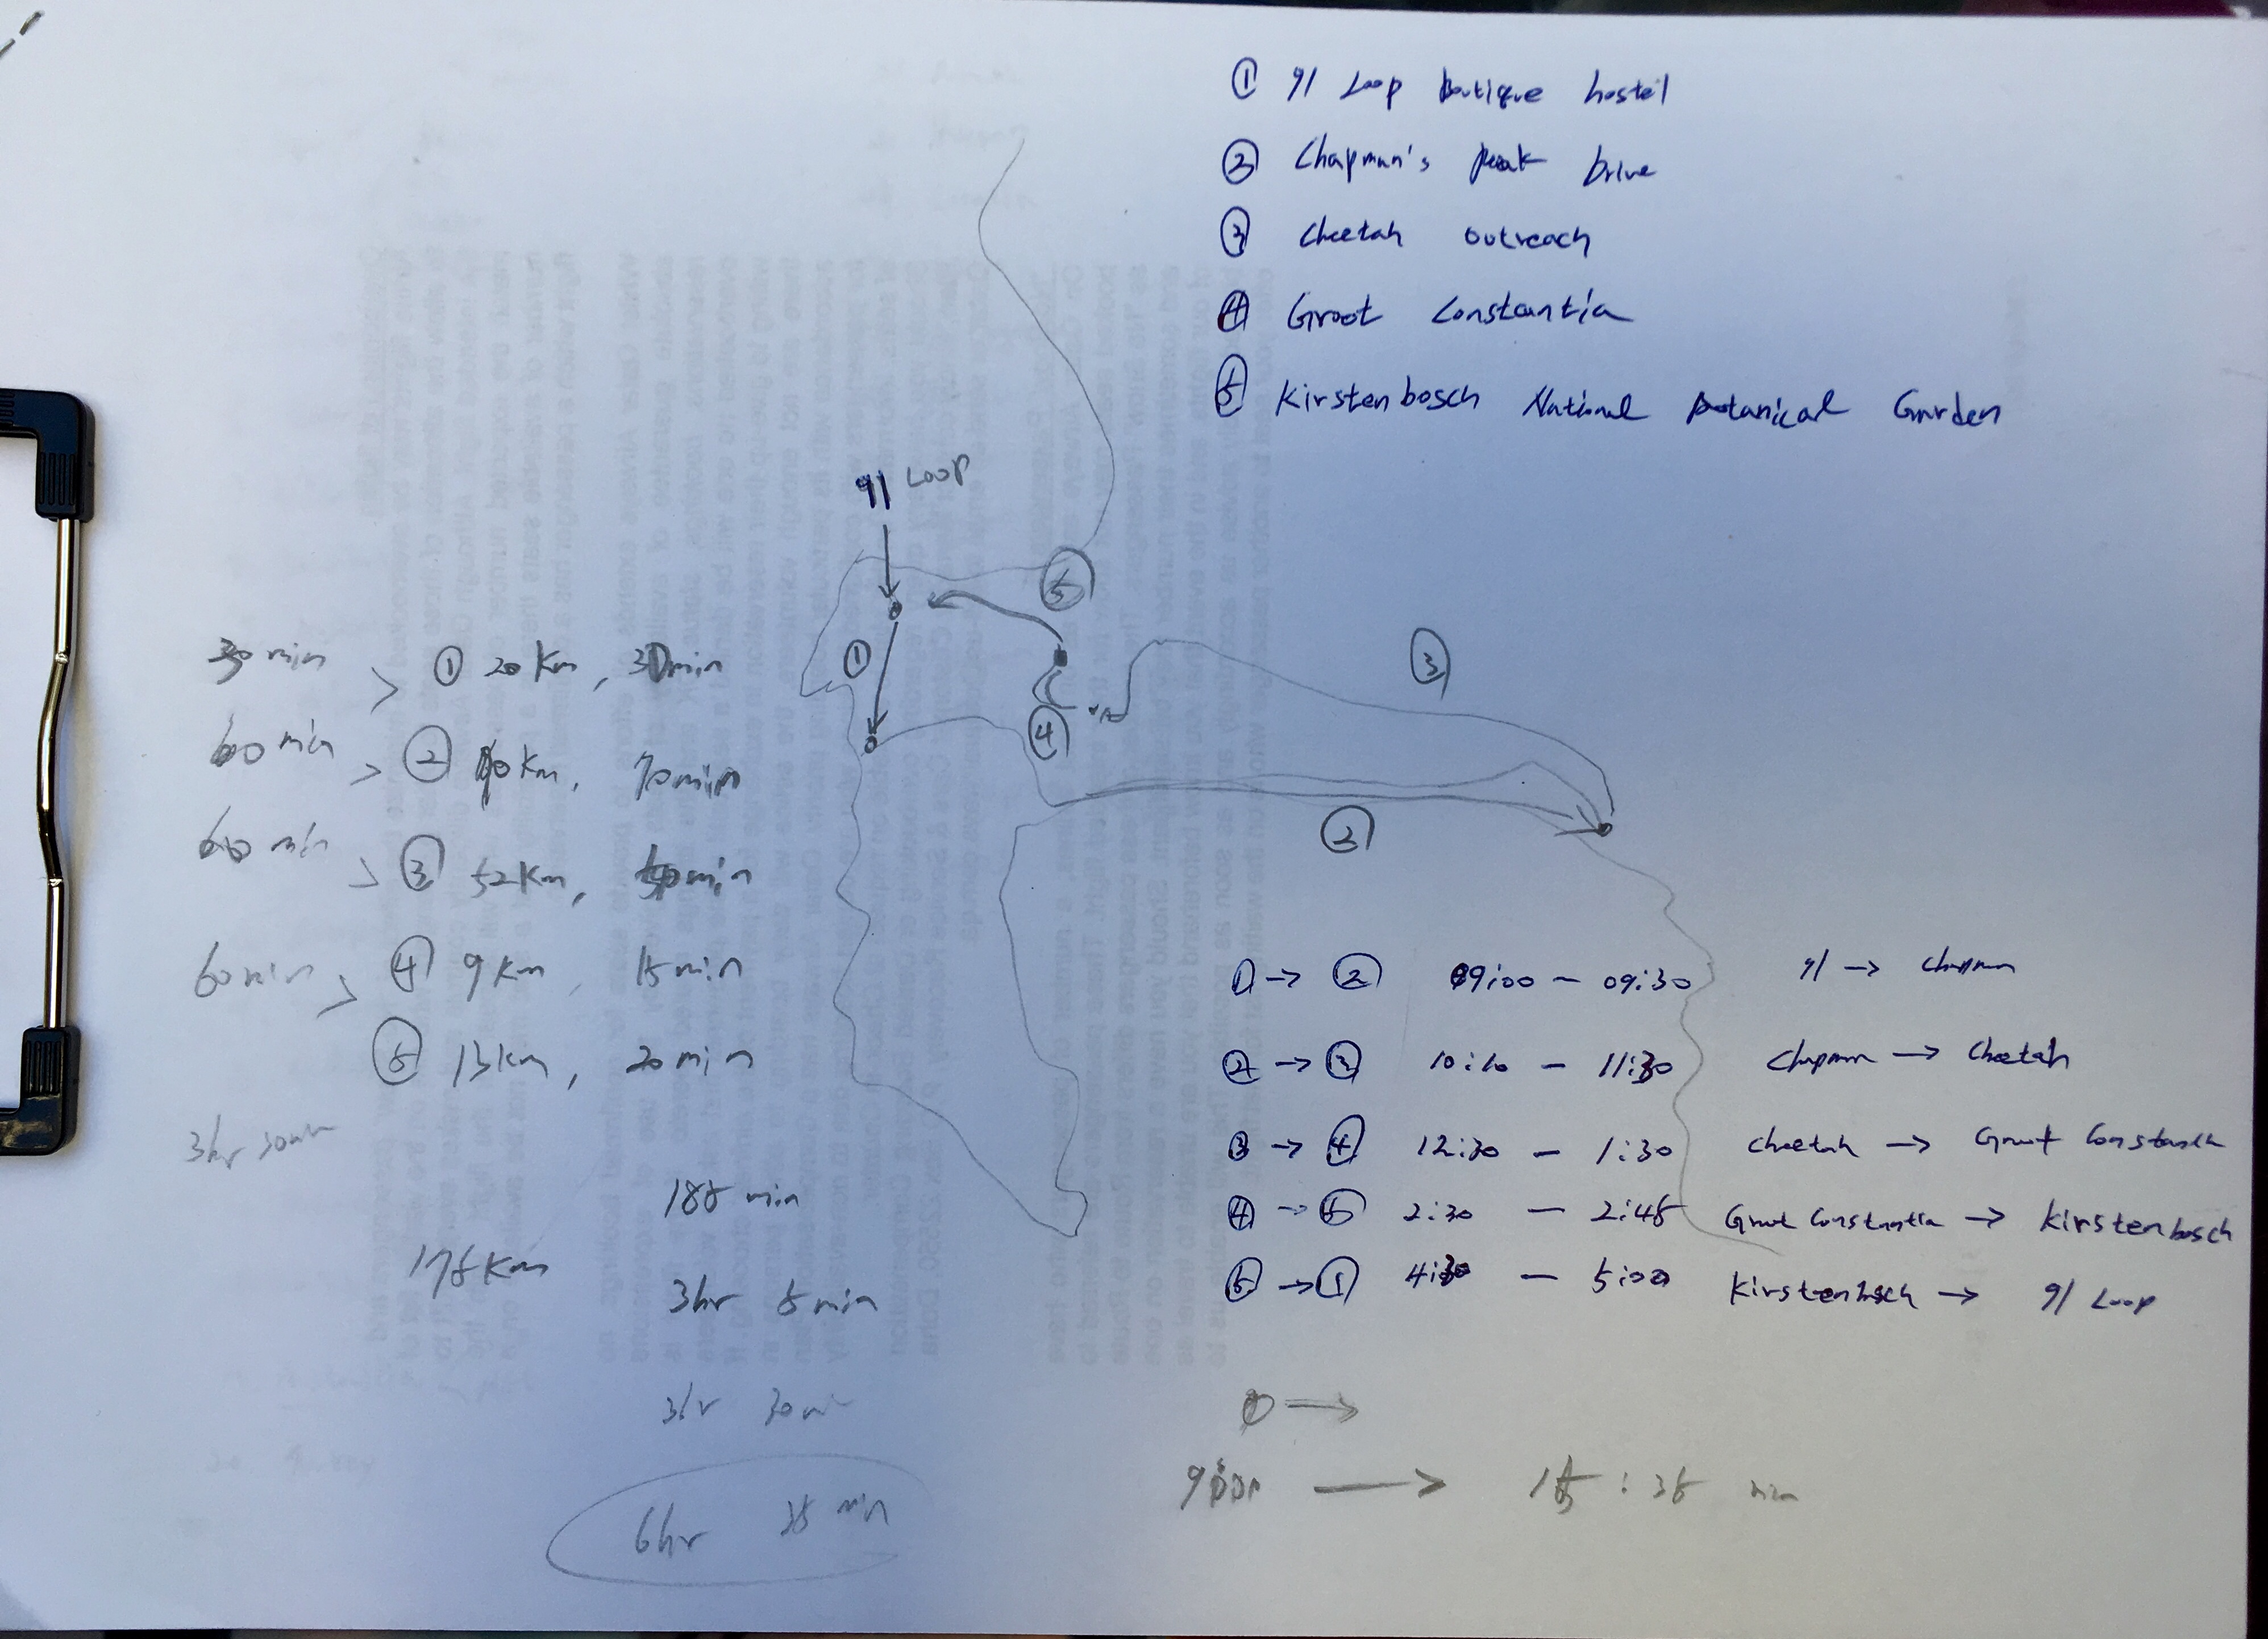 ① 91 Loop Boutique hostel
② Chapman's peak Drive
③ Cheetah outreach
④ Groot Constantia
⑤ Kirstenbosch National Botanical Garden
91 Loop
⑤
①
③
④
②
30 min > ① 20 Km, 30 min
60 min > ② km, 70 min
60 min > ③ 52 Km, min
60 min > ④ 9 Km, 15 min
⑤ 13 km, 20 min
3hr 30min
185 min
175 Km
3hr 5 min
3hr 30 min
6hr 35 min
① → ② 09:00 - 09:30 91 → Chapman
② → ③ 10:10 - 11:30 Chapman → Cheetah
③ → ④ 12:30 - 1:30 Cheetah → Groot
④ → ⑤ 2:30 - 2:45 Groot Constantia → Kirstenbosch
⑤ → ① 4:30 - 5:00 Kirstenbosch → 91 Loop
① →
→ 15:35 min